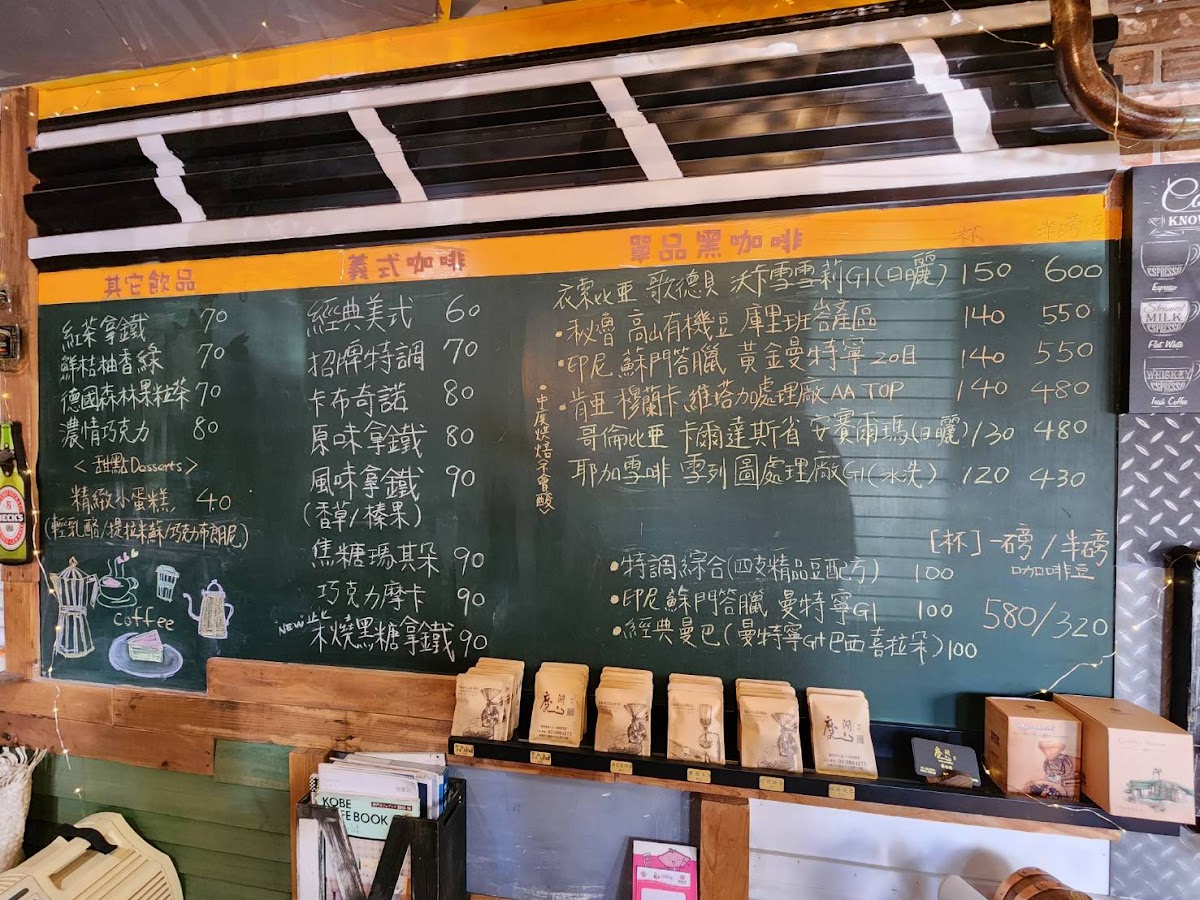 其它飲品
紅茶拿鐵 70
鮮桔柚香綠 70
德國森林果粒茶 70
濃情巧克力 80
<甜點Desserts>
精緻小蛋糕 40
(輕乳酪/提拉米蘇/巧克力布朗尼)
coffee
義式咖啡
經典美式 60
招牌特調 70
卡布奇諾 80
原味拿鐵 80
風味拿鐵 90
(香草/榛果)
焦糖瑪其朵 90
巧克力摩卡 90
NEW 木燒黑糖拿鐵 90
單品黑咖啡 杯 半磅
衣索比亞 歌德貝 沃卡雪雪莉G1(日曬) 150 600
•秘魯 高山有機豆 庫里班岩產區 140 550
•印尼 蘇門答臘 黃金曼特寧20目 140 550
•肯亞 穆蘭卡 維塔加處理廠AA TOP 140 480
哥倫比亞 卡爾達斯省 安賽爾瑪(日曬) 130 480
耶加雪啡 雪列圖處理廠G1(水洗) 120 430
•中度烘焙不會酸
[杯] 一磅/半磅
咖啡豆
•特調綜合(四支精品豆配方) 100
•印尼 蘇門答臘 曼特寧G1 100
•經典曼巴(曼特寧G1巴西喜拉朵) 100
580/320
KNOW
ESPRESSO
Espresso
Steamed
MILK
ESPRESSO
Flat White
WHISKEY
ESPRESSO
Irish Coffee
BECK'S
KOBE
BOOK